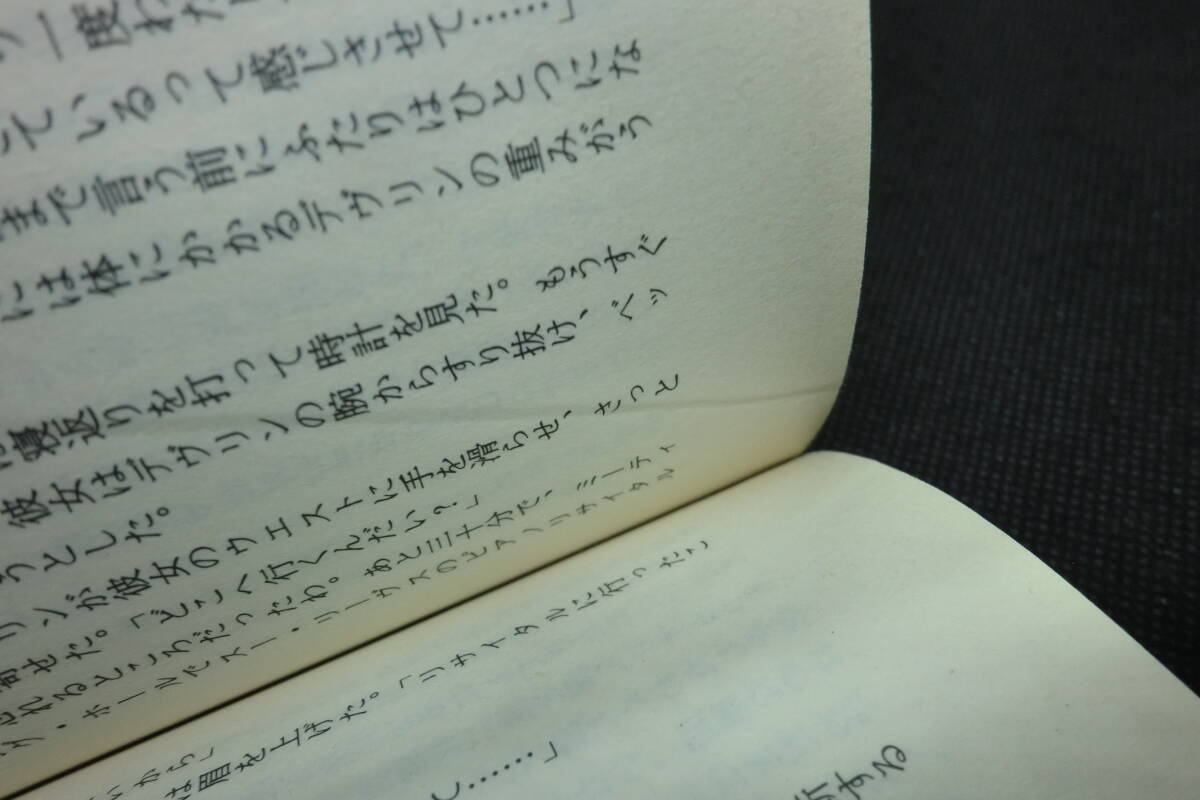 一度わか
ているって感じさせて……」
まで言う前にふたりはひとつにな
には体にかかるデヴリンの重みがう
は寝返りを打って時計を見た。もうすぐ
彼女はデヴリンの腕からすり抜け、ベッ
うとした。
リンが彼女のウエストに手を滑らせ、きっと
寄せた。「どこへ行くんだい？」
れるところだったわ。あと三十分で、ミーティ
・ホールでスー・リーヴスのピアノリサイタル
いから」
は眉を上げた。「リサイタルに行ったこ
て……」
する